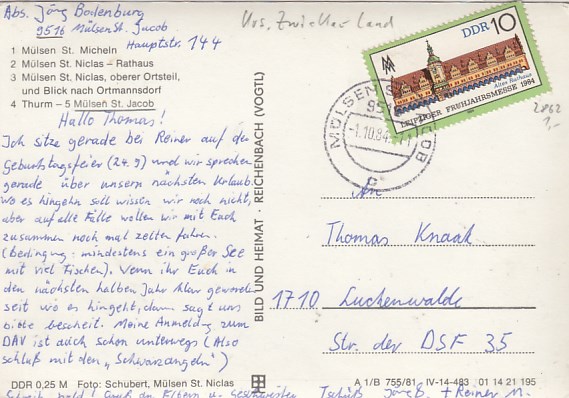 Abs. Jörg Bodenburg
9516 Mülsen St. Jacob
Hauptstr. 144
Krs. Zwickau Land
1 Mülsen St. Micheln
2 Mülsen St. Niclas – Rathaus
3 Mülsen St. Niclas, oberer Ortsteil,
und Blick nach Ortmannsdorf
4 Thurm – 5 Mülsen St. Jacob
Hallo Thomas!
Ich sitze gerade bei Reiner auf der
Geburtstagsfeier (24.9) und wir sprechen
gerade über unsern nächsten Urlaub.
Wo es hingehn soll wissen wir noch nicht,
aber auf alle Fälle wollen wir mit Euch
zusammen noch mal zelten fahren.
(Bedingung: mindestens ein großer See
mit viel Fischen). Wenn ihr Euch in
den nächsten halben Jahr klar geworden
seit wo es hingeht, dann sagt uns
bitte bescheit. Meine Anmeldung zum
DAV ist auch schon unterwegs (Also
schluß mit den „Schwarzangeln")
DDR 0,25 M Foto: Schubert, Mülsen St. Niclas
Schreib bald! Gruß an Eltern u. Geschwister
Tschüß Jörg B. + Reiner M.
BILD UND HEIMAT · REICHENBACH (VOGTL)
DDR 10
Altes Rathaus
LEIPZIGER FRÜHJAHRSMESSE 1984
MÜLSEN ST JACOB
951
-1.10.84
c
2862
1,-
An
Thomas Knaak
1710 Luckenwalde
Str. der DSF 35
A 1/B 755/81 IV-14-483 01 14 21 195